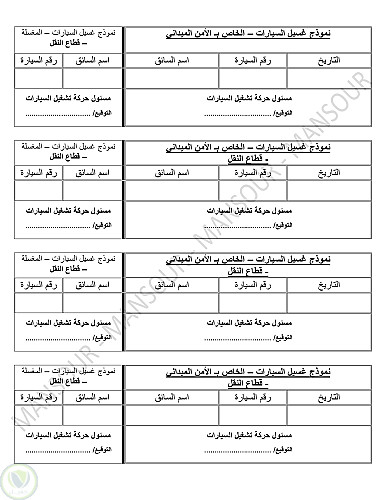 نموذج غسيل السيارات – الخاص بـ الأمن الميداني
التاريخ رقم السيارة اسم السائق
مسئول حركة تشغيل السيارات
التوقيع/ ................................
نموذج غسيل السيارات – المغسلة
– قطاع النقل
اسم السائق رقم السيارة
مسئول حركة تشغيل السيارات
التوقيع/ ................................
نموذج غسيل السيارات – الخاص بـ الأمن الميداني
- قطاع النقل
التاريخ رقم السيارة اسم السائق
مسئول حركة تشغيل السيارات
التوقيع/ ................................
نموذج غسيل السيارات – المغسلة
– قطاع النقل
اسم السائق رقم السيارة
مسئول حركة تشغيل السيارات
التوقيع/ ................................
نموذج غسيل السيارات – الخاص بـ الأمن الميداني
- قطاع النقل
التاريخ رقم السيارة اسم السائق
مسئول حركة تشغيل السيارات
التوقيع/ ................................
نموذج غسيل السيارات – المغسلة
– قطاع النقل
اسم السائق رقم السيارة
مسئول حركة تشغيل السيارات
التوقيع/ ................................
نموذج غسيل السيارات – الخاص بـ الأمن الميداني
- قطاع النقل
التاريخ رقم السيارة اسم السائق
مسئول حركة تشغيل السيارات
التوقيع/ ................................
نموذج غسيل السيارات – المغسلة
– قطاع النقل
اسم السائق رقم السيارة
مسئول حركة تشغيل السيارات
التوقيع/ ................................
MANSOUR - MANSOUR - MANSOUR - MANSOUR